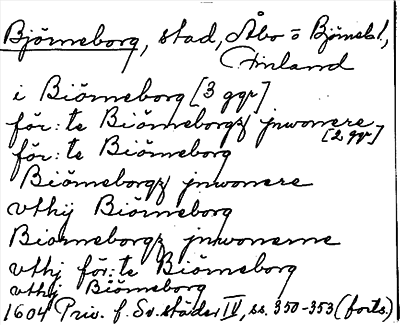 Björneborg, stad, Åbo o Björnebl.,
Finland
i Biörneborg [3 ggr]
för:te Biörneborgz jnwonere
[2 ggr]
för:te Biörneborg
Biörneborgz jnwonere
vthij Biörneborg
Biorneborgz jnwonerne
vthj för:te Biörneborg
vthj Biörneborg
1604 Priv. f. Sv. städer IV, ss. 350-353 (forts.)